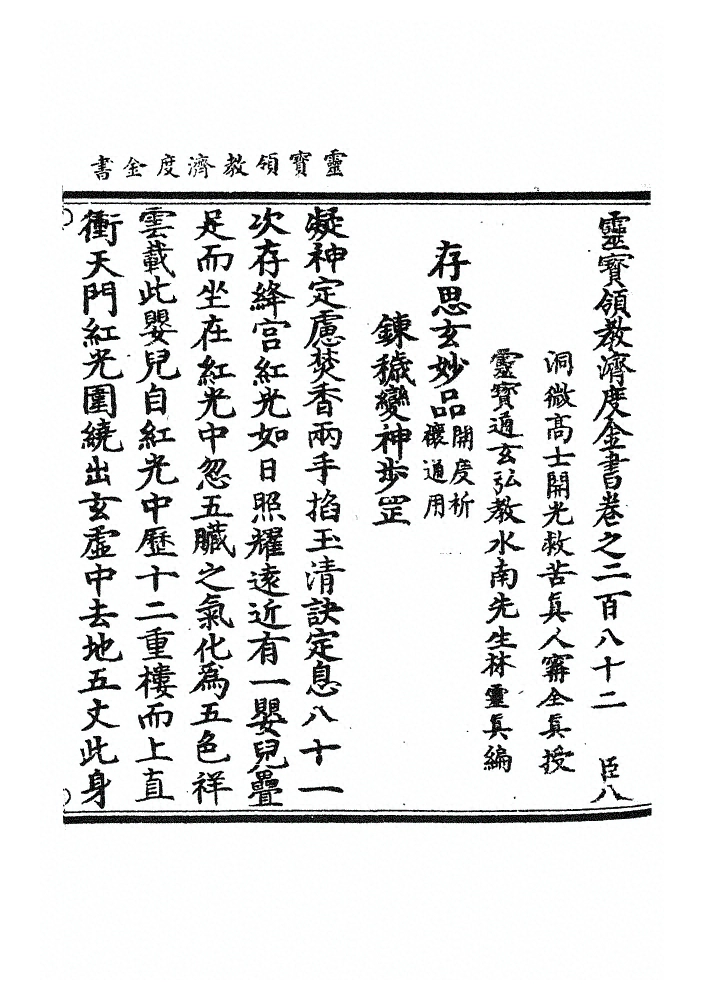 靈寶領教濟度金書
靈寶領教濟度金書卷之二百八十二　臣八
洞微高士開光救苦眞人甯全眞授
靈寶通玄弘教水南先生林靈眞編
存思玄妙品開度祈
禳通用
鍊穢變神步罡
凝神定慮焚香兩手掐玉清訣定息八十一
次存絳宮紅光如日照耀遠近有一嬰兒疊
足而坐在紅光中忽五臟之氣化爲五色祥
雲載此嬰兒自紅光中歷十二重樓而上直
衝天門紅光圍繞出玄虛中去地五丈此身